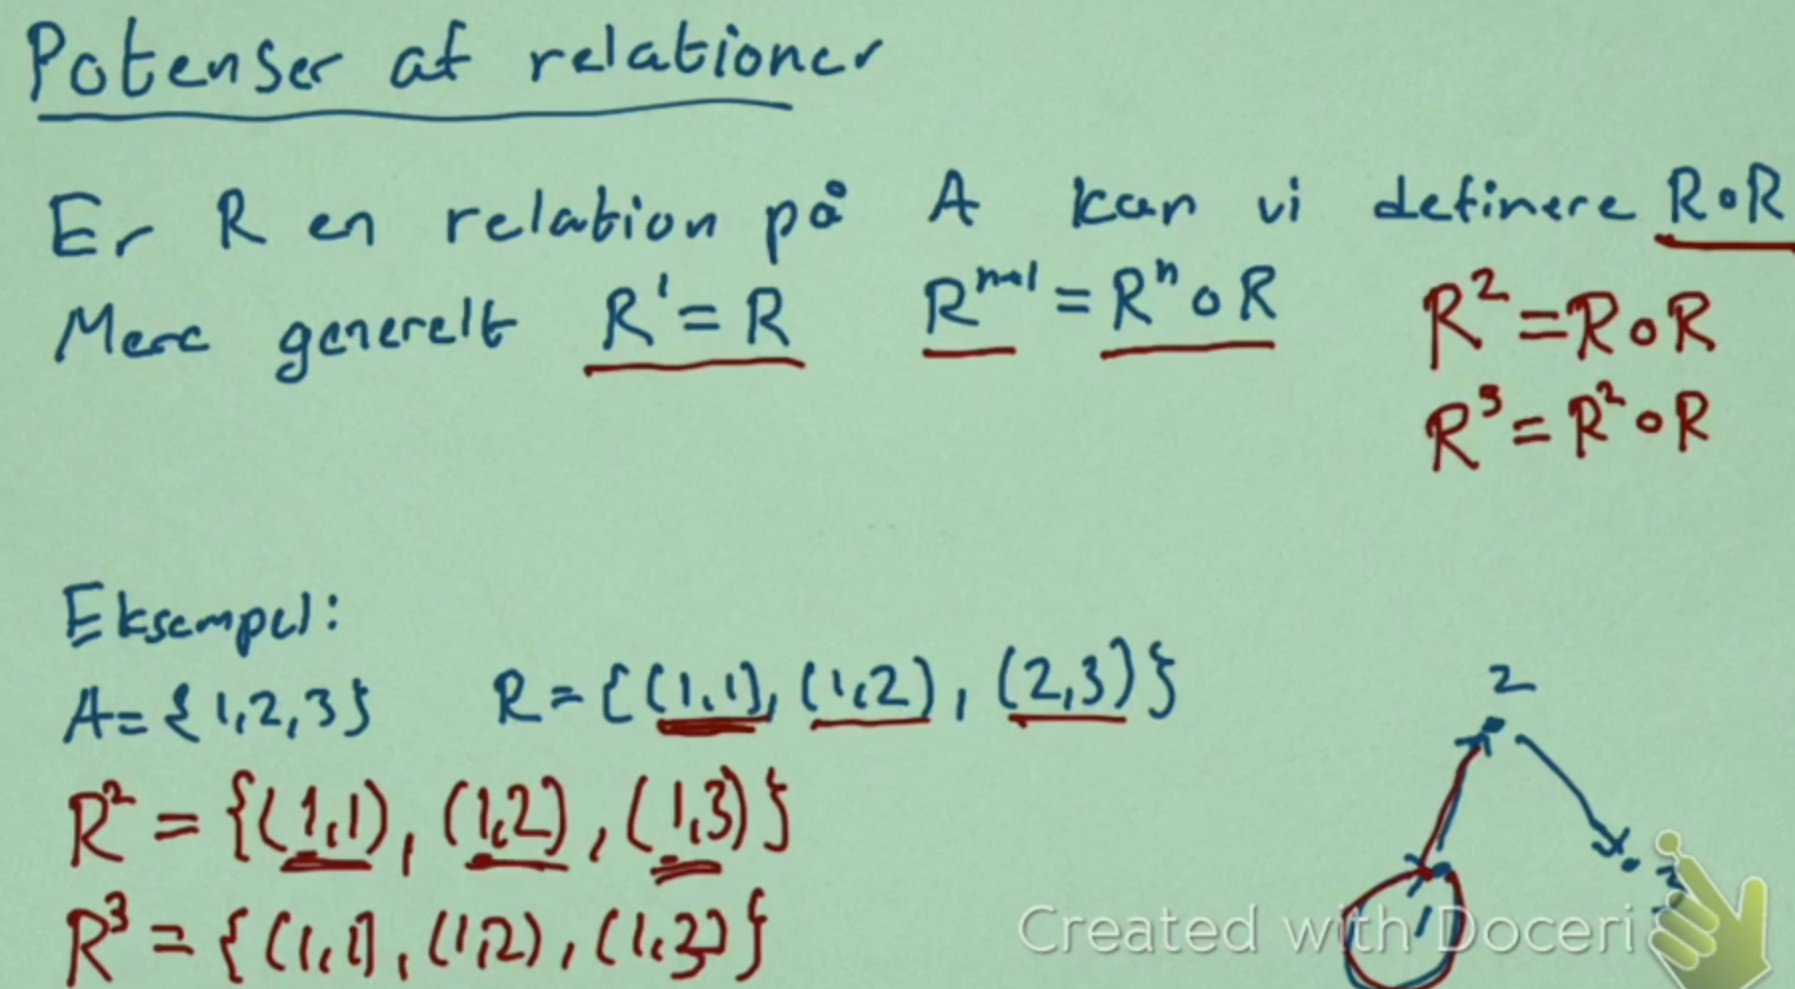 Potenser af relationer
Er R en relation på A kan vi definere R∘R
Mere generelt R¹ = R Rⁿ⁺¹ = Rⁿ∘R R² = R∘R
R³ = R²∘R
Eksempel:
A = {1,2,3} R = {(1,1), (1,2), (2,3)}
2
R² = {(1,1), (1,2), (1,3)}
3
R³ = {(1,1), (1,2), (1,3)}
1
Created with Doceri